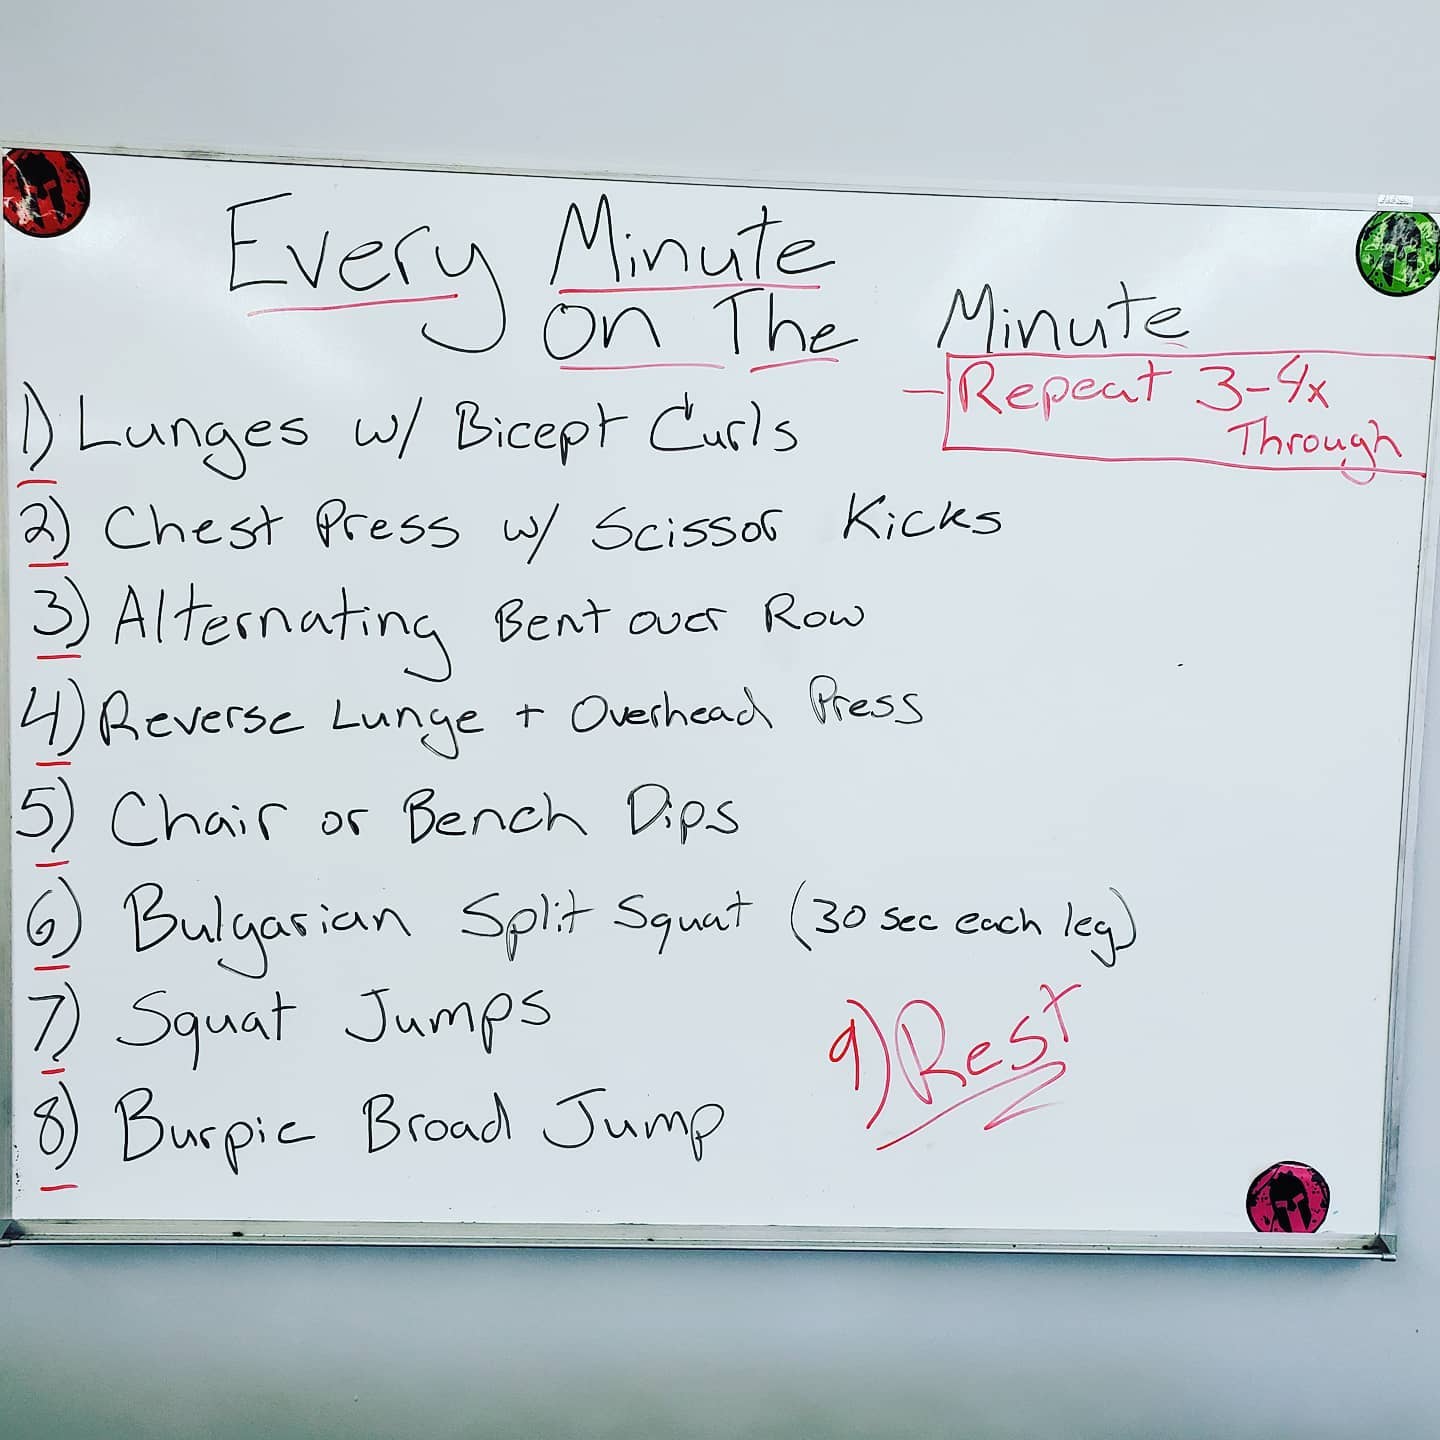 Every Minute
On The Minute
Repeat 3-4x
Through
1) Lunges w/ Bicept Curls
2) Chest Press w/ Scissor Kicks
3) Alternating Bent over Row
4) Reverse Lunge + Overhead Press
5) Chair or Bench Dips
6) Bulgarian Split Squat (30 sec each leg)
7) Squat Jumps
8) Burpie Broad Jump
9) Rest